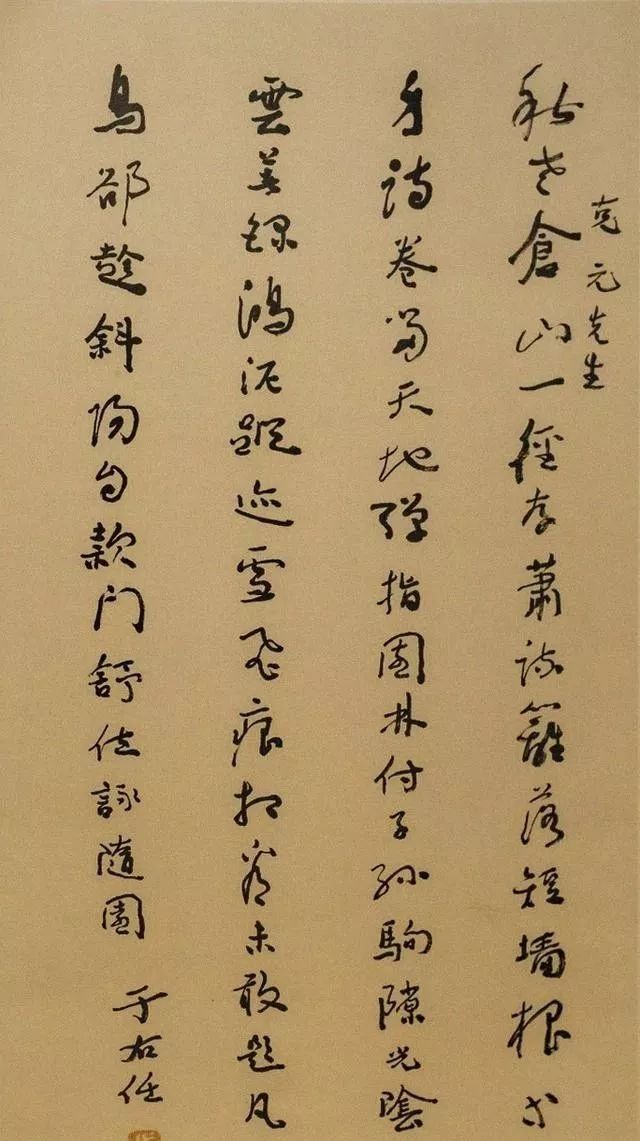 克元先生
秋老倉山一徑存蕭疏籬落短墻根等
身詩卷留天地彈指園林付子孫駒隙光陰
雲著鴻泥蹤迹雪飛痕相看未敢題凡
鳥卻趁斜陽自款門舒位詠隨園
于右任